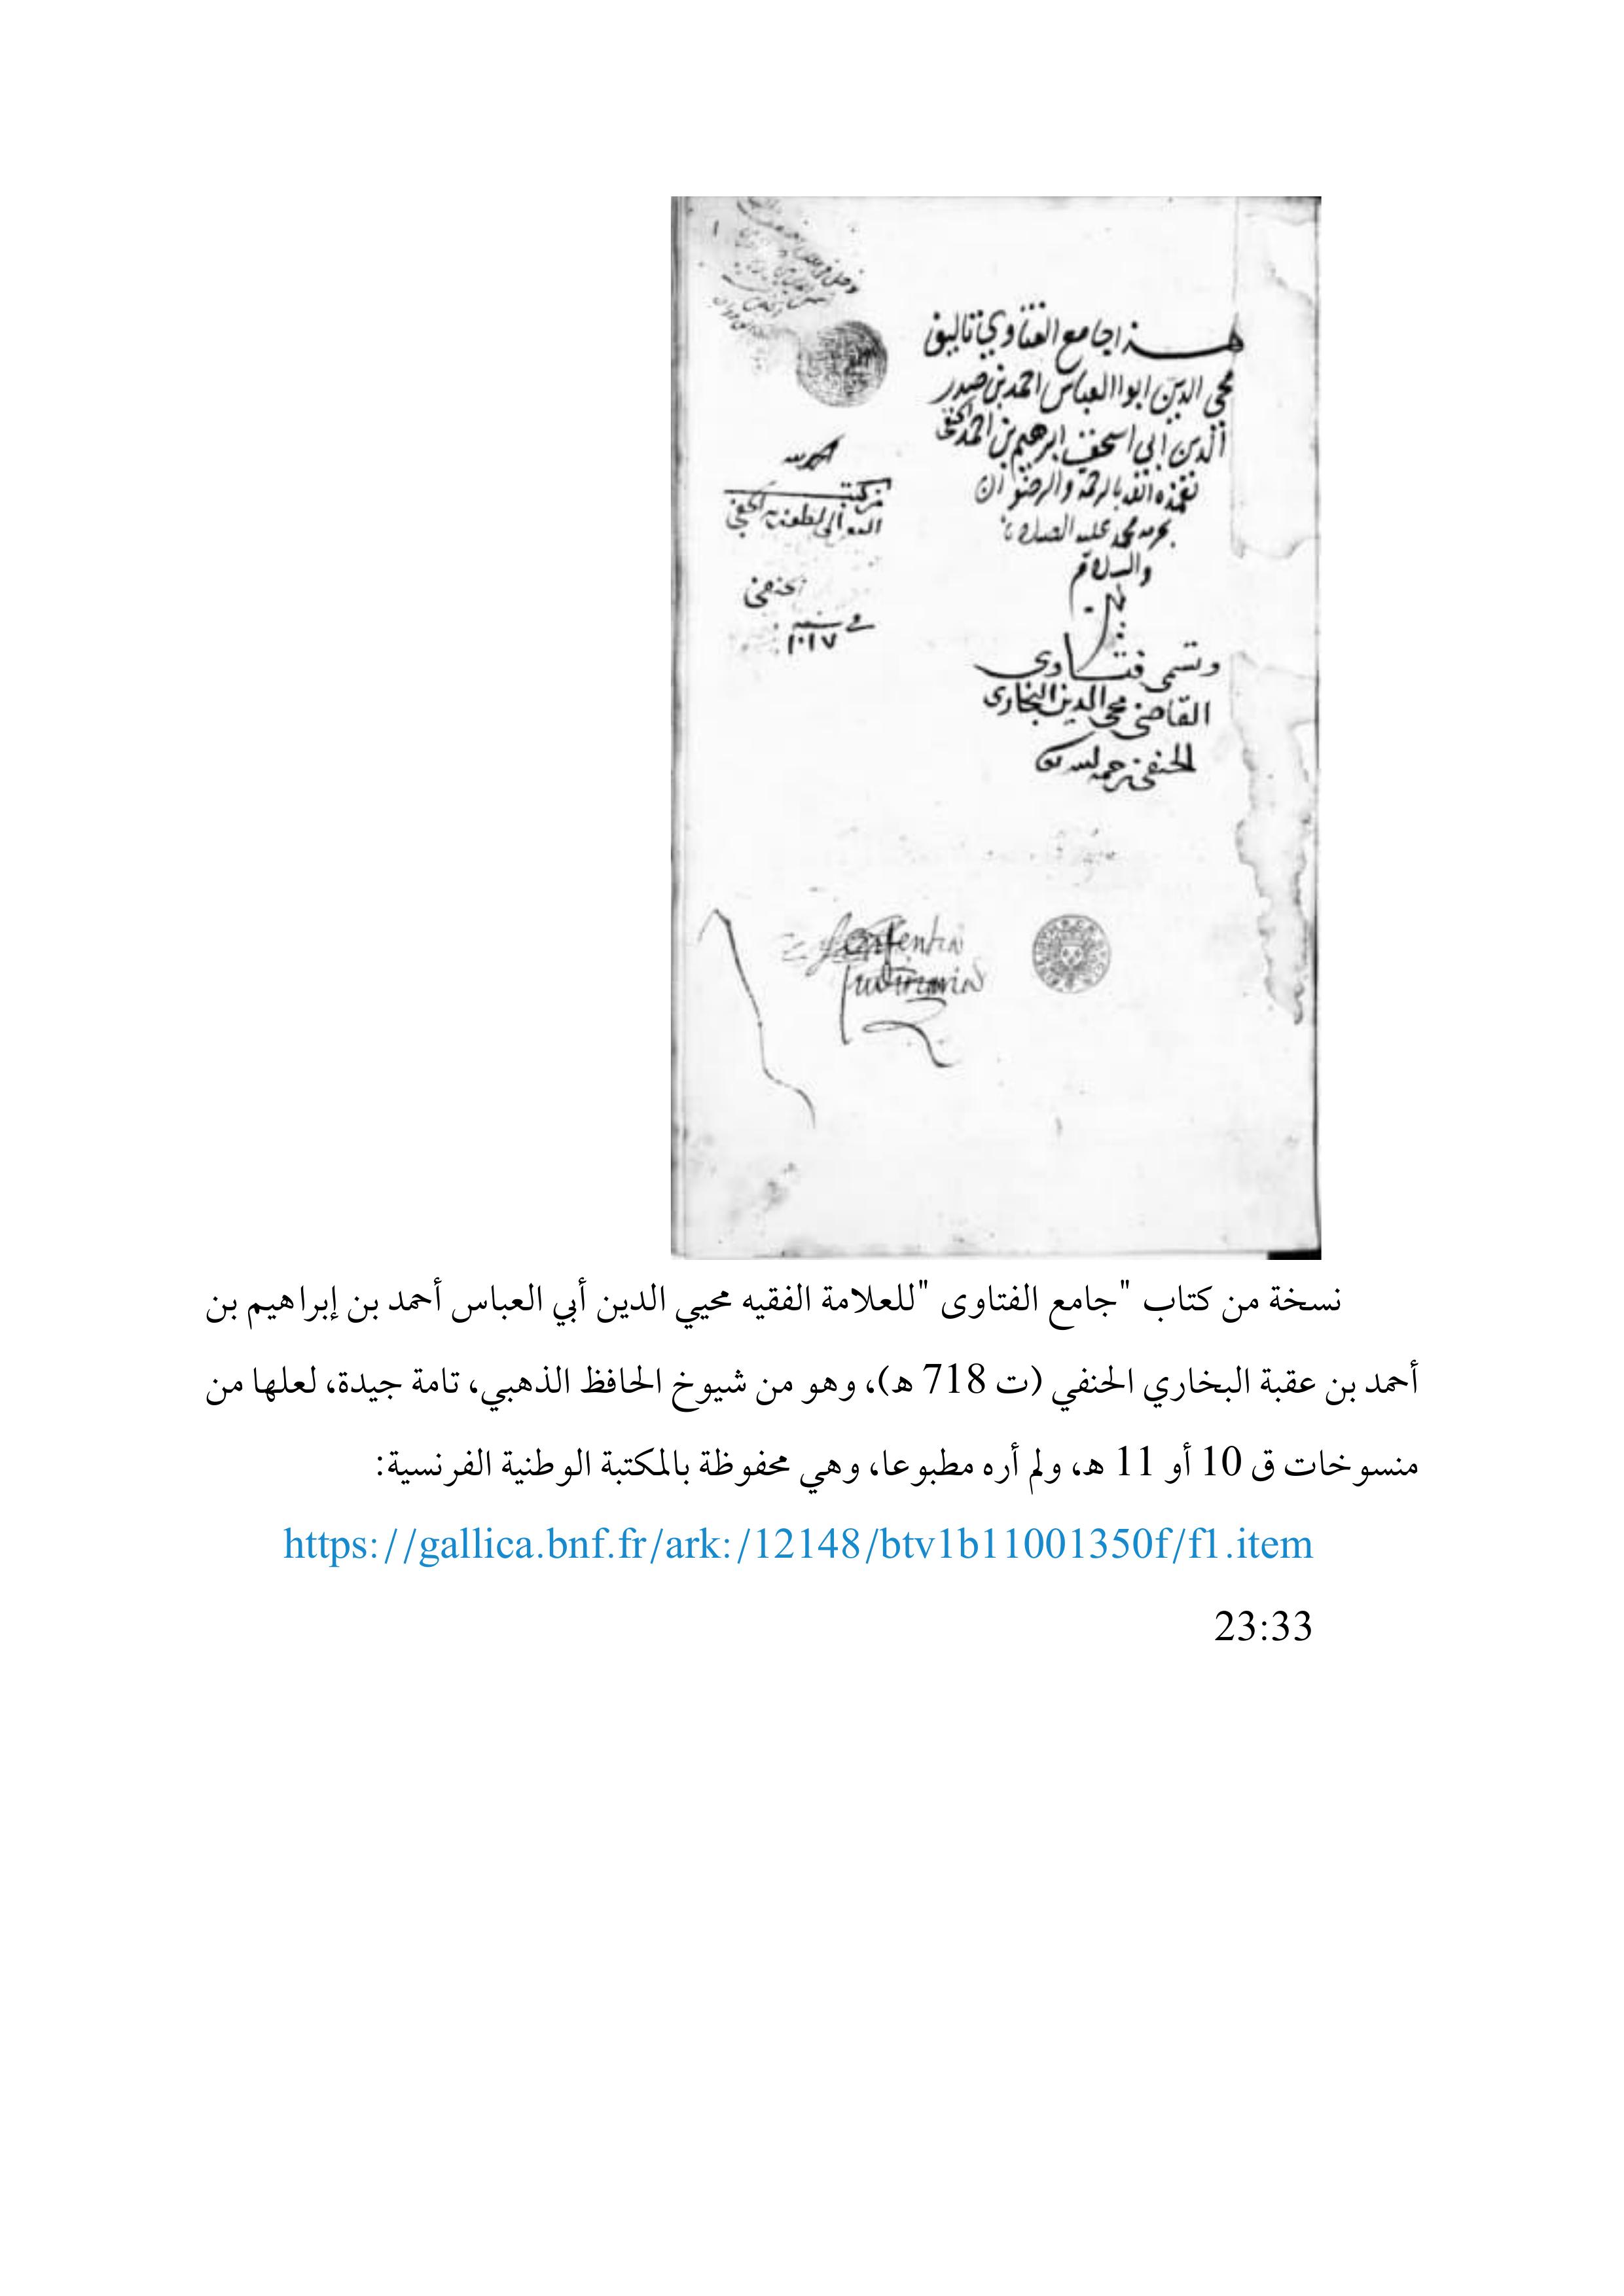 هذا جامع الفتاوي تاليف
محي الدين ابو العباس احمد بن صدر
الدين ابي اسحق ابرهيم بن احمد الحنفي
تغمده الله بالرحمة والرضوان
بحرمة محمد عليه الصلاة
والسلام
وتسمى فتاوى
القاضي محي الدين البخارى
الحنفي رحمه الله
الحمد لله
من كتب
الحنفي
في سنة
١٠١٧
نسخة من كتاب "جامع الفتاوى "للعلامة الفقيه محيي الدين أبي العباس أحمد بن إبراهيم بن
أحمد بن عقبة البخاري الحنفي (ت 718 ه)، وهو من شيوخ الحافظ الذهبي، تامة جيدة، لعلها من
منسوخات ق 10 أو 11 ه، ولم أره مطبوعا، وهي محفوظة بالمكتبة الوطنية الفرنسية:
https://gallica.bnf.fr/ark:/12148/btv1b11001350f/f1.item
23:33